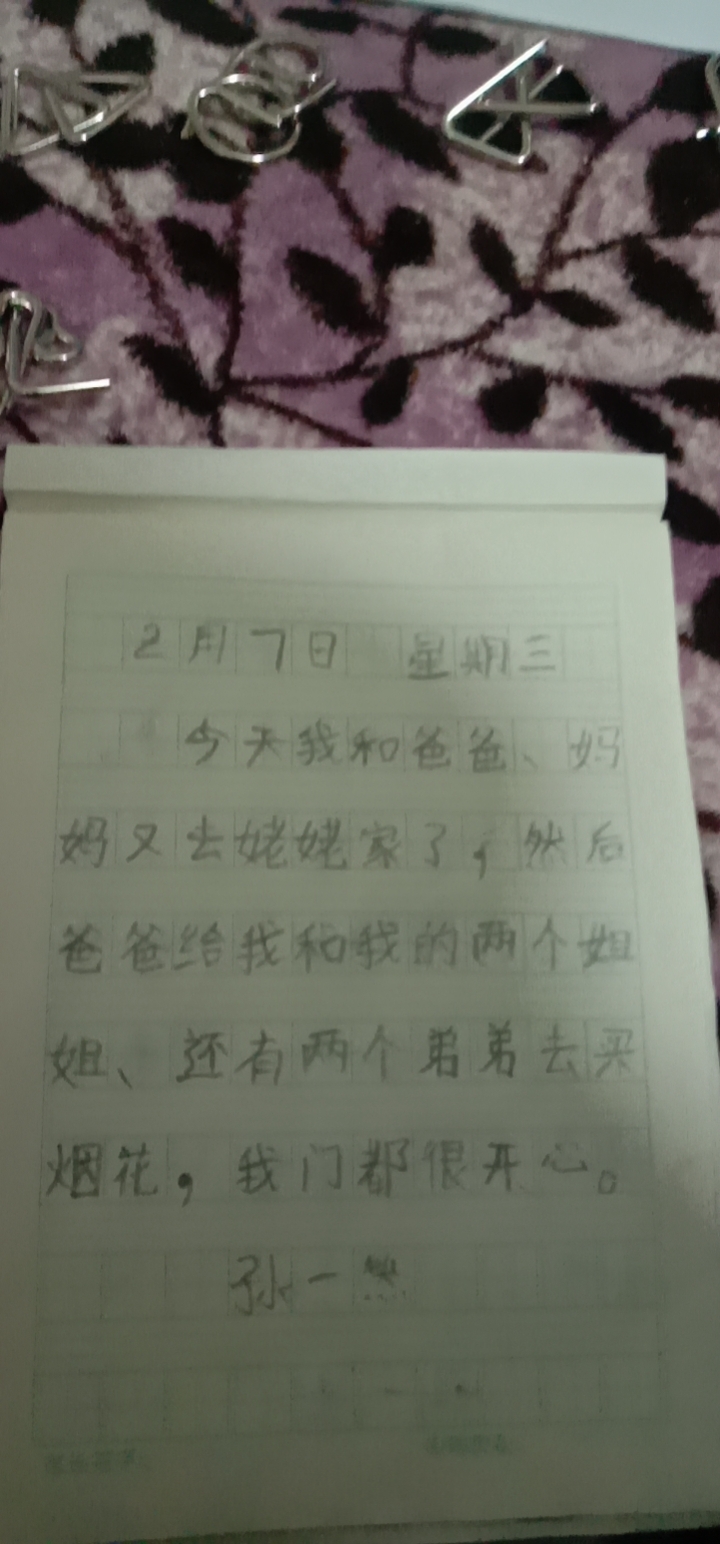 2月7日 星期三
今天我和爸爸、妈
妈又去姥姥家了,然后
爸爸给我和我的两个姐
姐、还有两个弟弟去买
烟花,我门都很开心。
孙一然